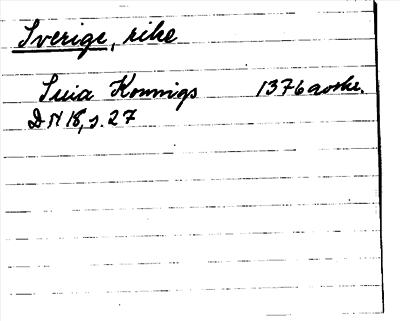 Sverige, rike
Suia Konnnigs 1376 avskr.
DN 18, s. 27